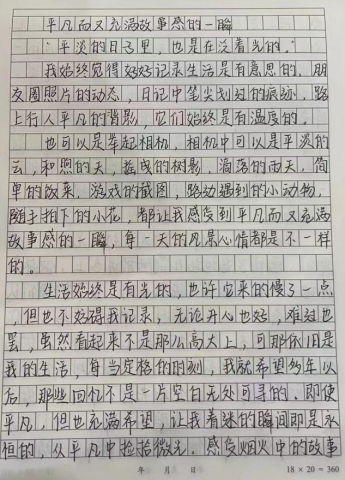 平凡而又充满故事感的一瞬
“平淡的日子里，也是在泛着光的。”
我始终觉得好好记录生活是有意思的，朋
友圈照片的动态，日记中笔尖划过的痕迹，路
上行人平凡的背影，它们始终是有温度的。
也可以是举起相机，相机中可以是平淡的
云，和煦的天，摇曳的树影，滴落的雨天，简
单的饭菜，游戏的截图，路边遇到的小动物，
随手拍下的小花，都让我感受到平凡而又充满
故事感的一瞬，每一天的风景心情都是不一样
的。
生活始终是有光的，也许它来的慢了一点
，但也不妨碍我记录，无论开心也好，难过也
罢，虽然看起来不是那么高大上，可那依旧是
我的生活，每当定格的时刻，我就希望多年以
后，那些回忆不是一片空白无处可寻的，即使
平凡，但也充满希望，让我着迷的瞬间即是永
恒的，从平凡中捡拾微光，感受烟火中的故事
年 月 日 18×20=360